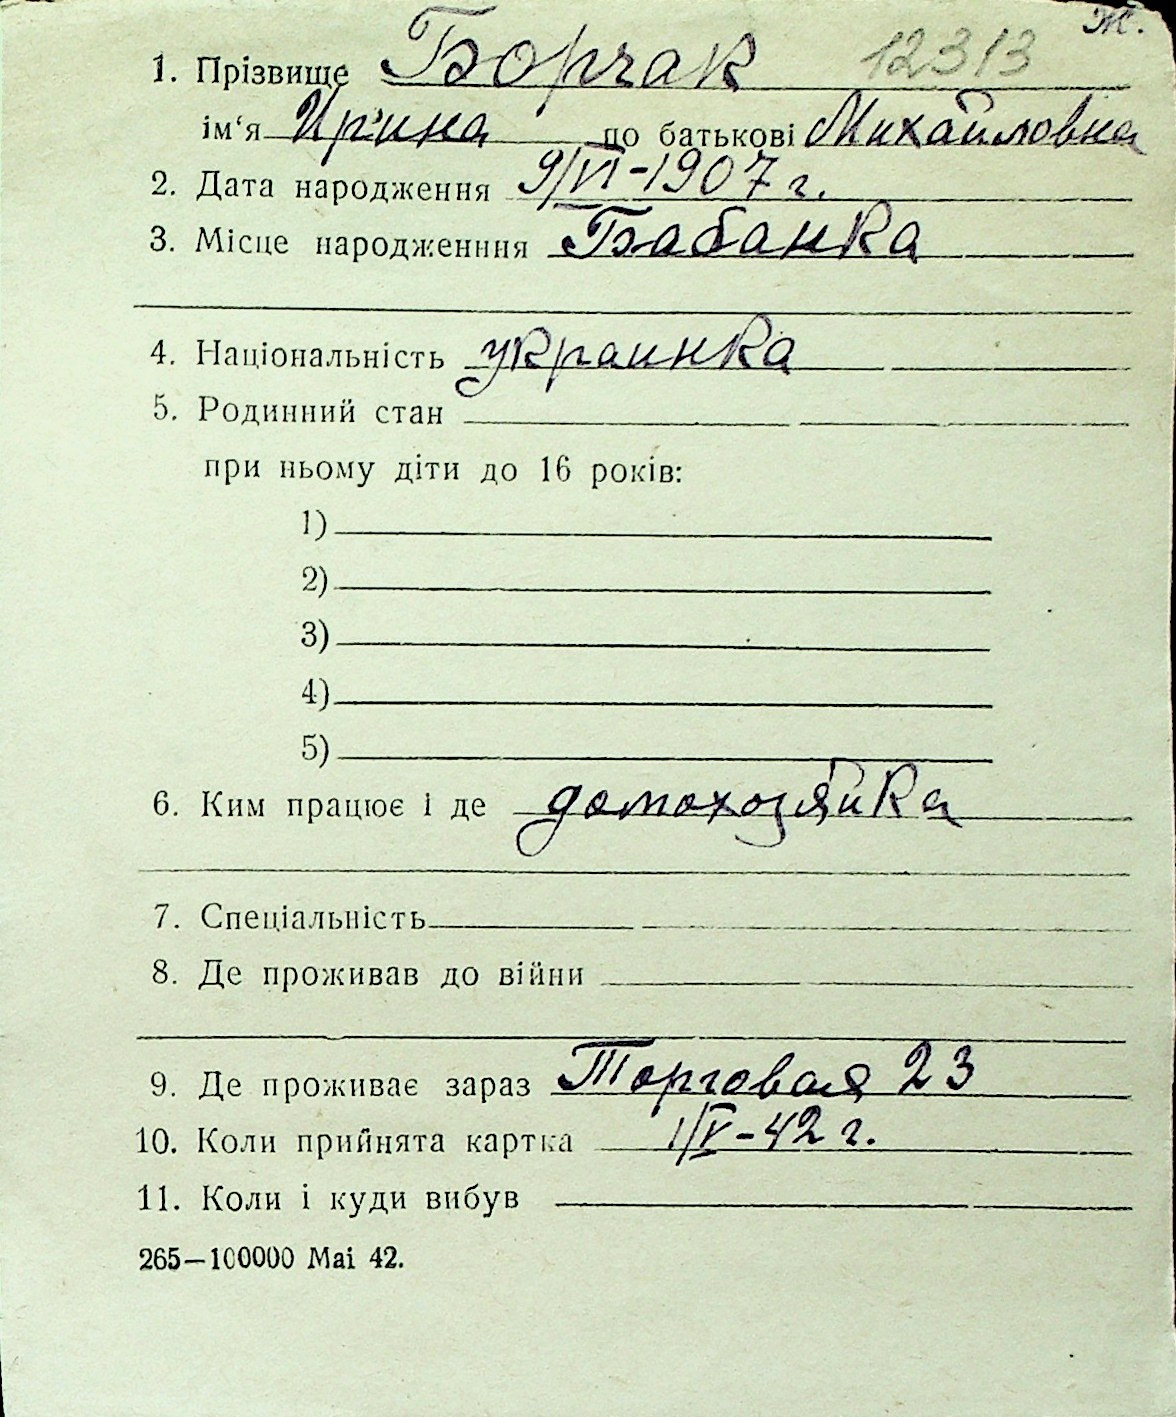 Ж.
1. Прізвище Борчак 12313
ім‘я Ирина по батькові Михайловна
2. Дата народження 9/VI-1907 г.
3. Місце народженння Бабанка
4. Національність украинка
5. Родинний стан
при ньому діти до 16 років:
1)
2)
3)
4)
5)
6. Ким працює і де домохозяйка
7. Спеціальність
8. Де проживав до війни
9. Де проживає зараз Торговая 23
10. Коли прийнята картка 1/V-42 г.
11. Коли і куди вибув
265—100000 Mai 42.